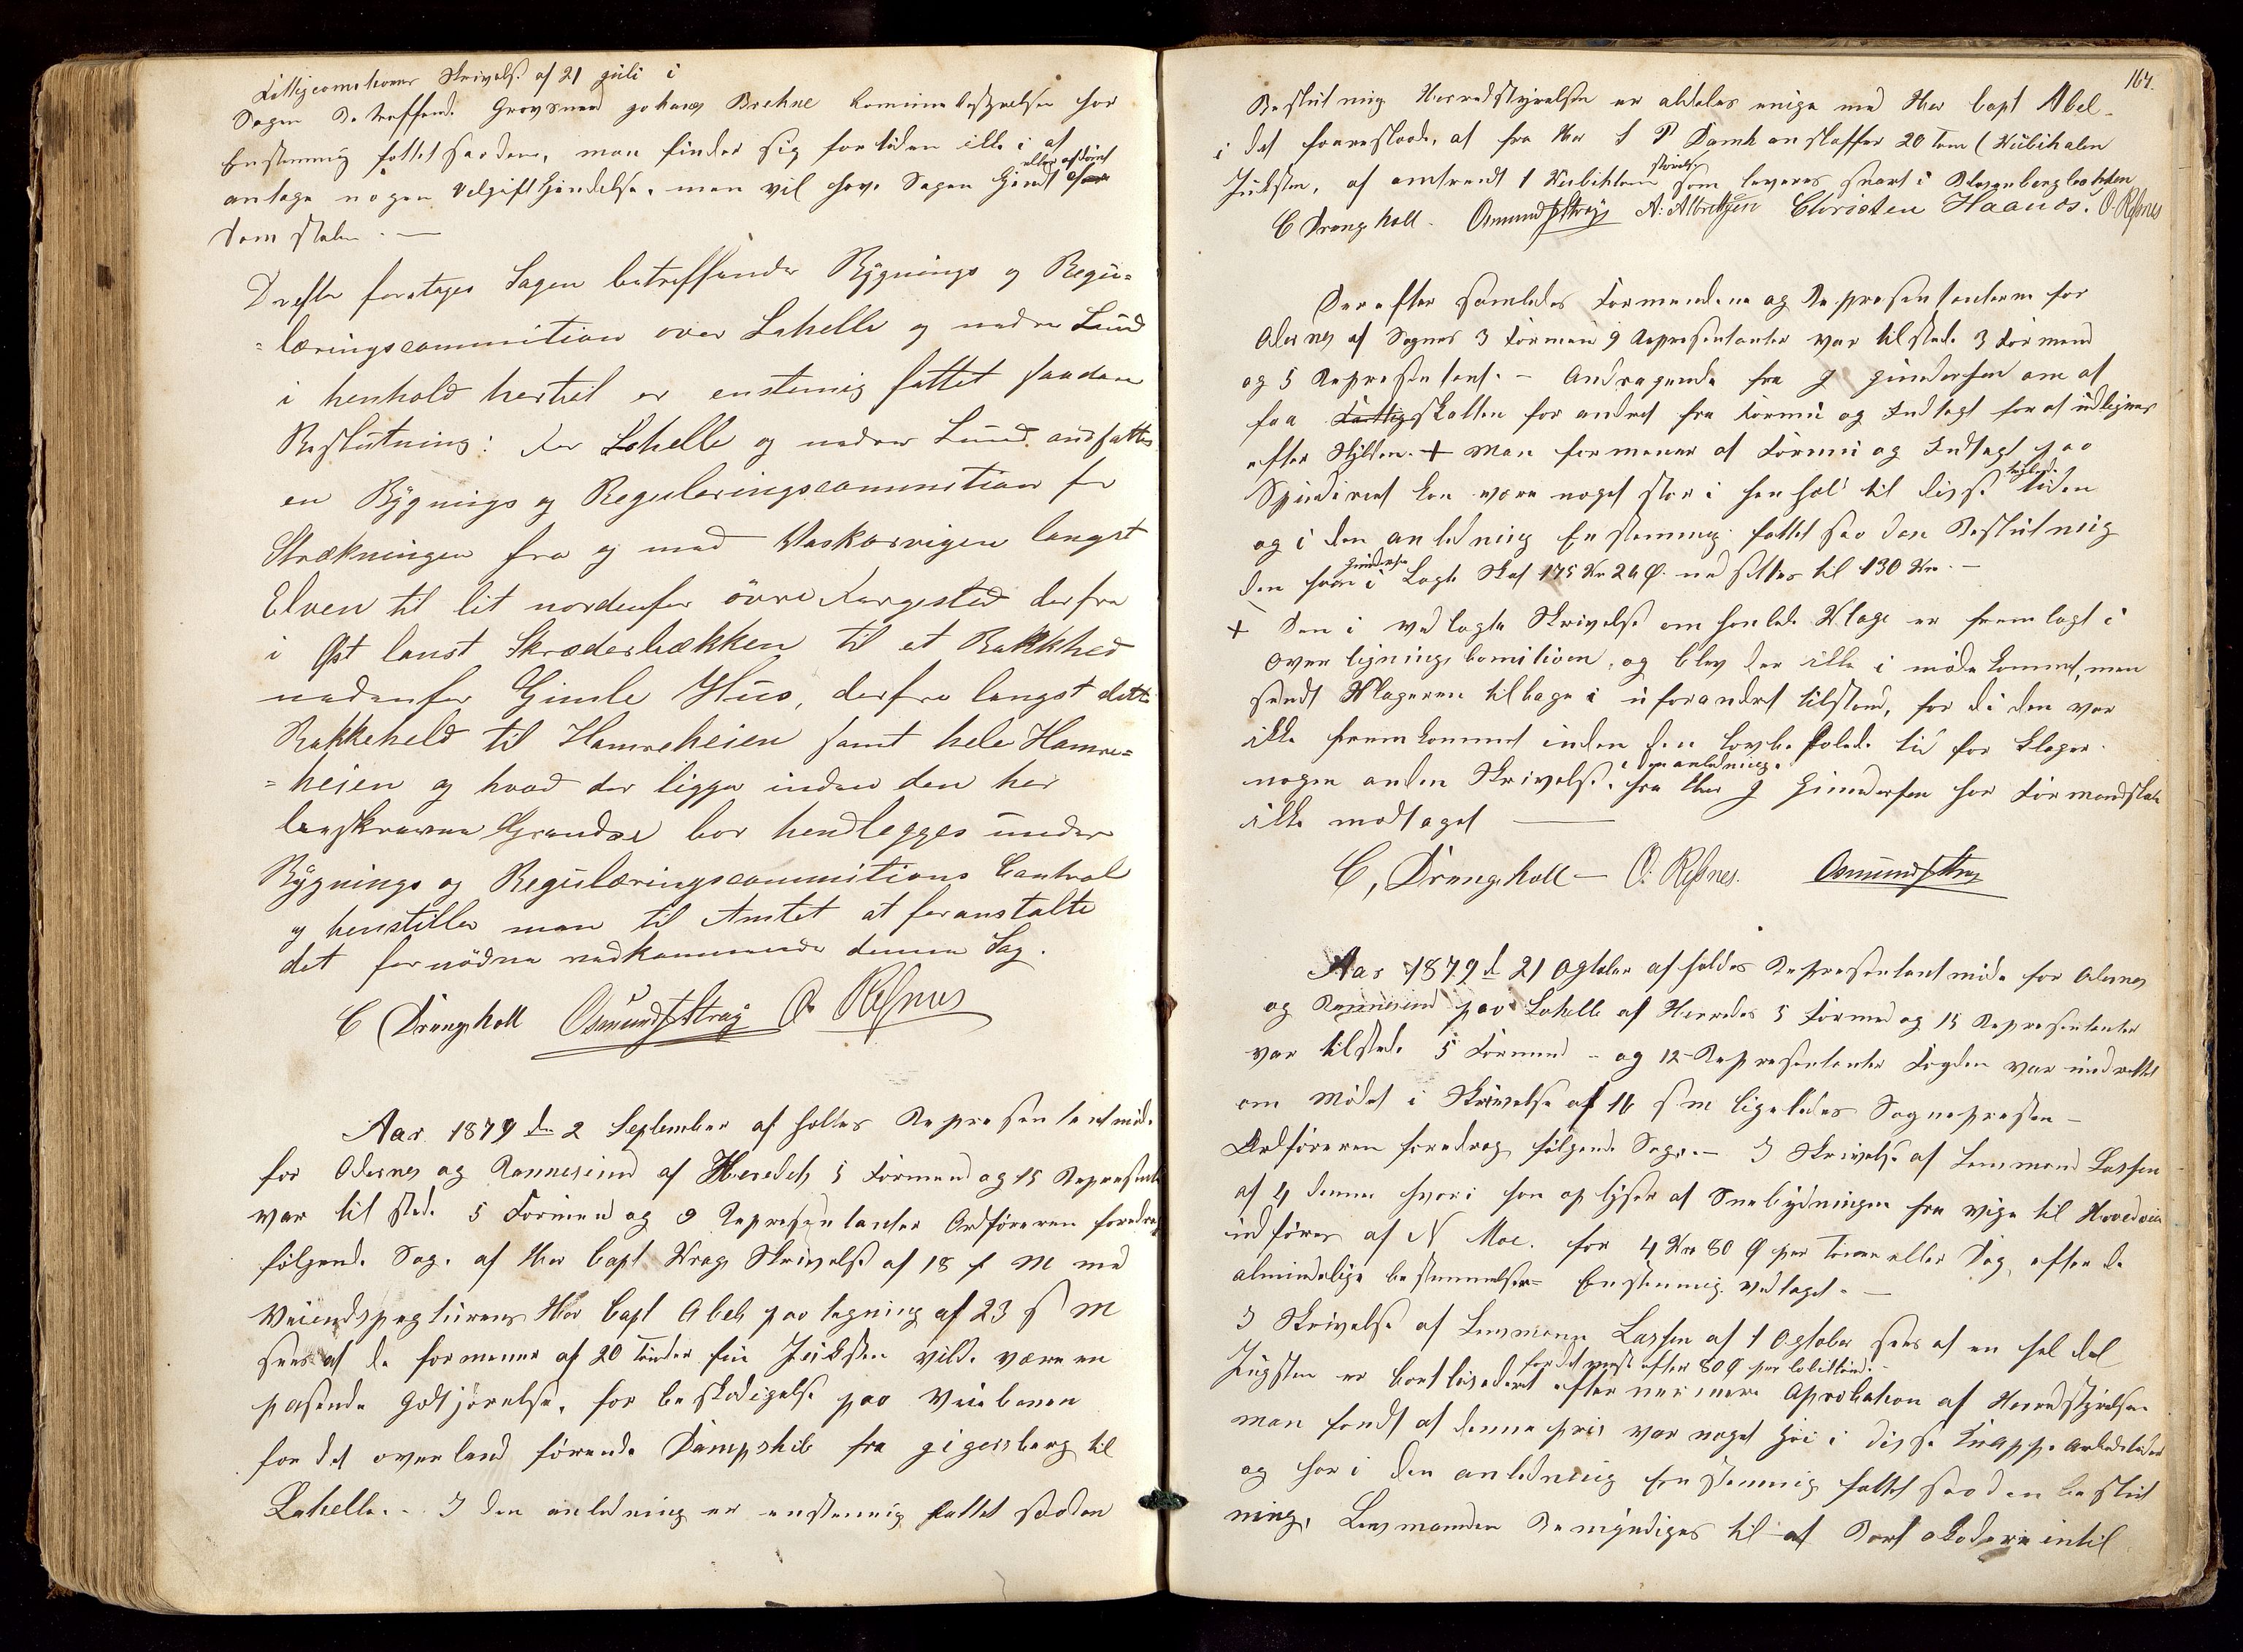 Fattigcomitionens Skrivelse af 21 Juli i
Sagen betreffende Grovsmed Johans Brehne Komunebestyrelsen har
Enstemmig fattet saadan, man finder sig fortiden ikke i at
antage nogen Kjendelse, men vil have Sagen Kjendt eller afdømt
Domstolen. —
Derefter foretoges Sagen betreffende Bygnings og Regu-
læringscommition over Lahelle og nedre Lund
i henhold hertil er enstemig fattet saadan
Beslutning: For Lahelle og nedre Lund andsattes
en Bygnings og Reguleringscommition for
Strækningen fra og med Vaskervigen langst
Elven til lit nordenfor övre Fergested derfra
i Øst lanst Skræderbækken til et Bakkheld
nedenfor Gimle Hus, derfra langst dette
Bakkeheld til Hamreheien samt hele Hamre-
heien og hvad der ligger inden den her
beskrevne Grændse bør henlegges under
Bygnings og Regulæringscommitions Control
og henstiller man til Amtet at foranstalte
det fornödne vedkommende denne Sag.
C Drangsholt Osmund Strag O. Refsnes
Aar 1879 den 2 September afholtes Representantmöde
for Odernes og Rannesund af Heredets 5 Formend og 15 Represent
var tilstede 5 Formend og 9 Representanter Ordföreren foredrog
følgende Sag. af Her Capt Krag Skrivelse af 18 f M med
Veiindspegtörens Her Capt Abels paategning af 23 s M
sees at de formener at 20 Tönder fin Juksten vilde være en
pasende Godtjörelse, for beskadigelse paa Veibanen
for det over land förende Dampskib fra Gigersberg til
Lahelle. — I den anledning er enstemmig fattet saadan
164.
Beslutning Herredstyrelsen er aldeles enige med Her Capt Abel
i det foreslaade, at fra Her S P Damk anskaffer 20 Tom (Kubikalen
Juksten, af omtrendt 1 Kubiktom störelse som leveres snart i
C Drangsholt. Osmund Strag A: Albretzen Christen Haanes. O. Refsnes
Derefter samledes Formendene og Representanterne for
Odernes af Sognes 3 Formen 9 Representanter var tilstede 3 Formend
og 5 Representant. — Andragende fra J Gundersen om at
faa Fattigskatten forandret fra Formu og Indtegt for at udlignes
efter Skylden. + Man formener at Formu og Indtegt paa
Spinderiet kan være noget stor i henhold til disse tider
og i den anledning Enstemmig fattet saadan Beslutning
den Gundersen i Lagte Skat 175 Kr 24 Ø. nedsettes til 130 Kr. —
+ Den i vedlagte Skrivelse omhanlede Klage er fremlagt i
Overligningskomitionen, og blev der ikke i mödekommet, men
sendt Klageren tilbage i uforandret tilstand, fordi den var
ikke fremkommet inden den Lovbefalede tid for Klager.
nogen anden Skrivelse i den anledning. fra Her J Gundersen har Formandskabet
ikke modtaget —
C, Drangsholt — O. Refsnes. Osmund Strag
Aar 1879 d 21 Ogtober afholdes Representantmöde for Odernes
og Rannesund paa Lahelle af Herredes 5 Formend og 15 Representanter
var tilstede 5 Formend — og 12 Representanter Fogden var underettet
om Mödet i Skrivelse af 16 s m ligeledes Sognepresten —
Ordföreren foredrog följende Sage. — I Skrivelse af Lensmand Lassen
af 4 denne hvori han oplyser at Snebrydningen fra Vige til
udföres af N Moe. for 4 Kr 80 Ø per Time eller Dag, efter de
almindelige bestemmelser = Enstemmig vedtaget. —
I Skrivelse af Lensmann Lassen af 1 Ogtober sees at en hel del
Jugsten er bortliciteret for det meste efter 80 Ø per efter nermere Aprobation af Herredstyrelsen
man fandt at denne pris var noget höi i disse knappe Arbeidstider
og har i den anledning Enstemmig fattet saadan beslut
ning, Lensmanden bemyndiges til at Bort akodere intil